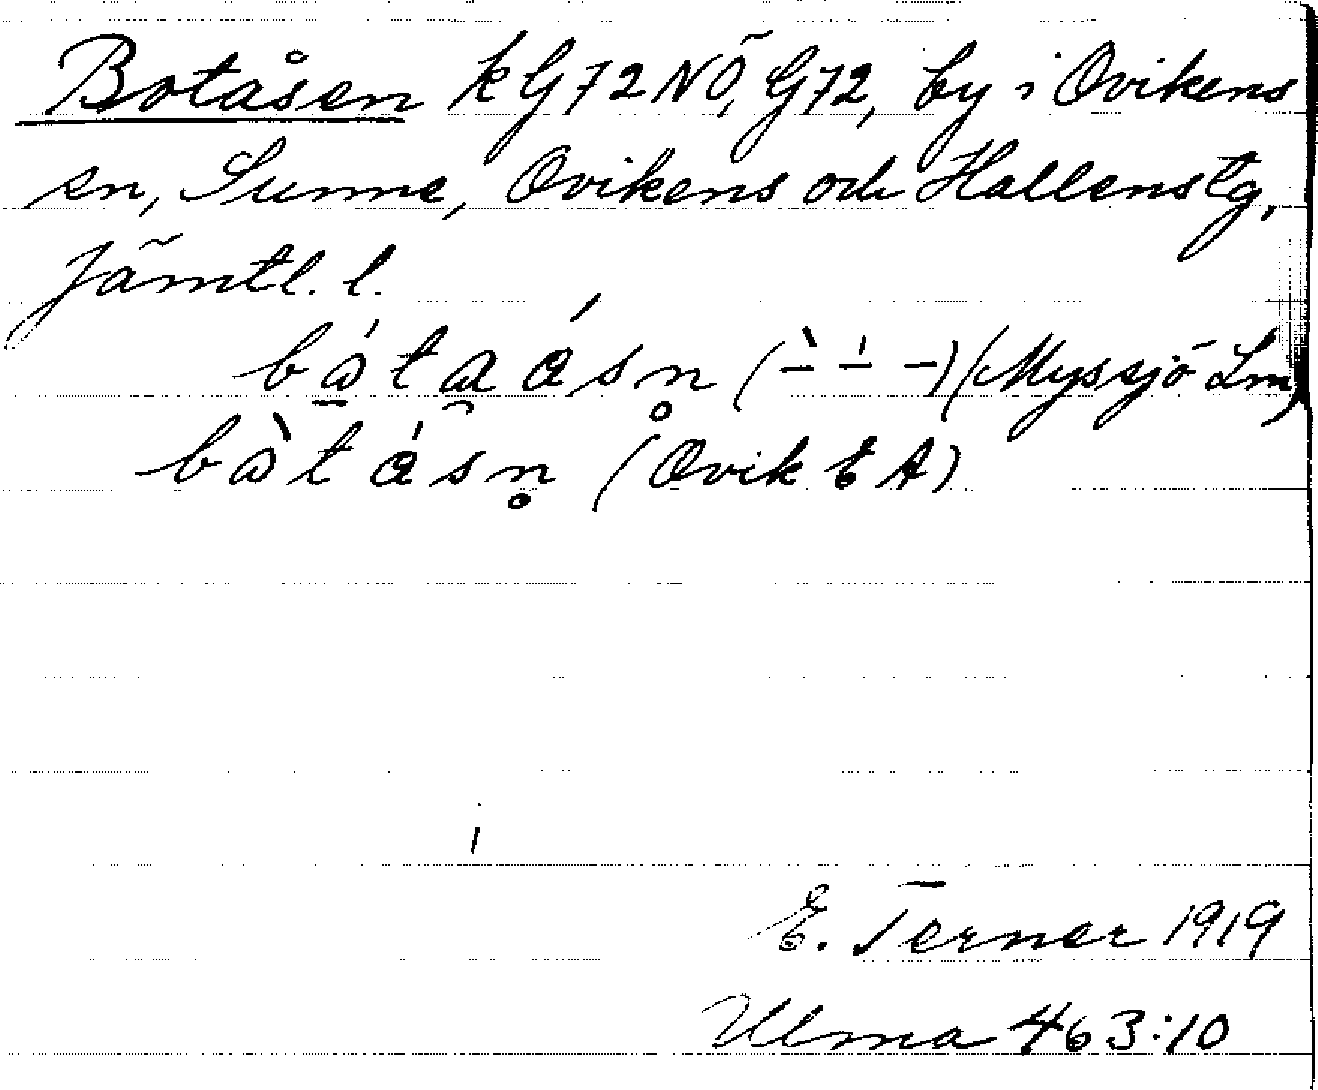 Botåsen kG72NÖ, G72, by i Ovikens
sn, Sunne, Ovikens och Hallens tg,
Jämtl. l.
(Myssjö Lm)
(Ovik EA)
E. Terner 1919
Ulma 463:10